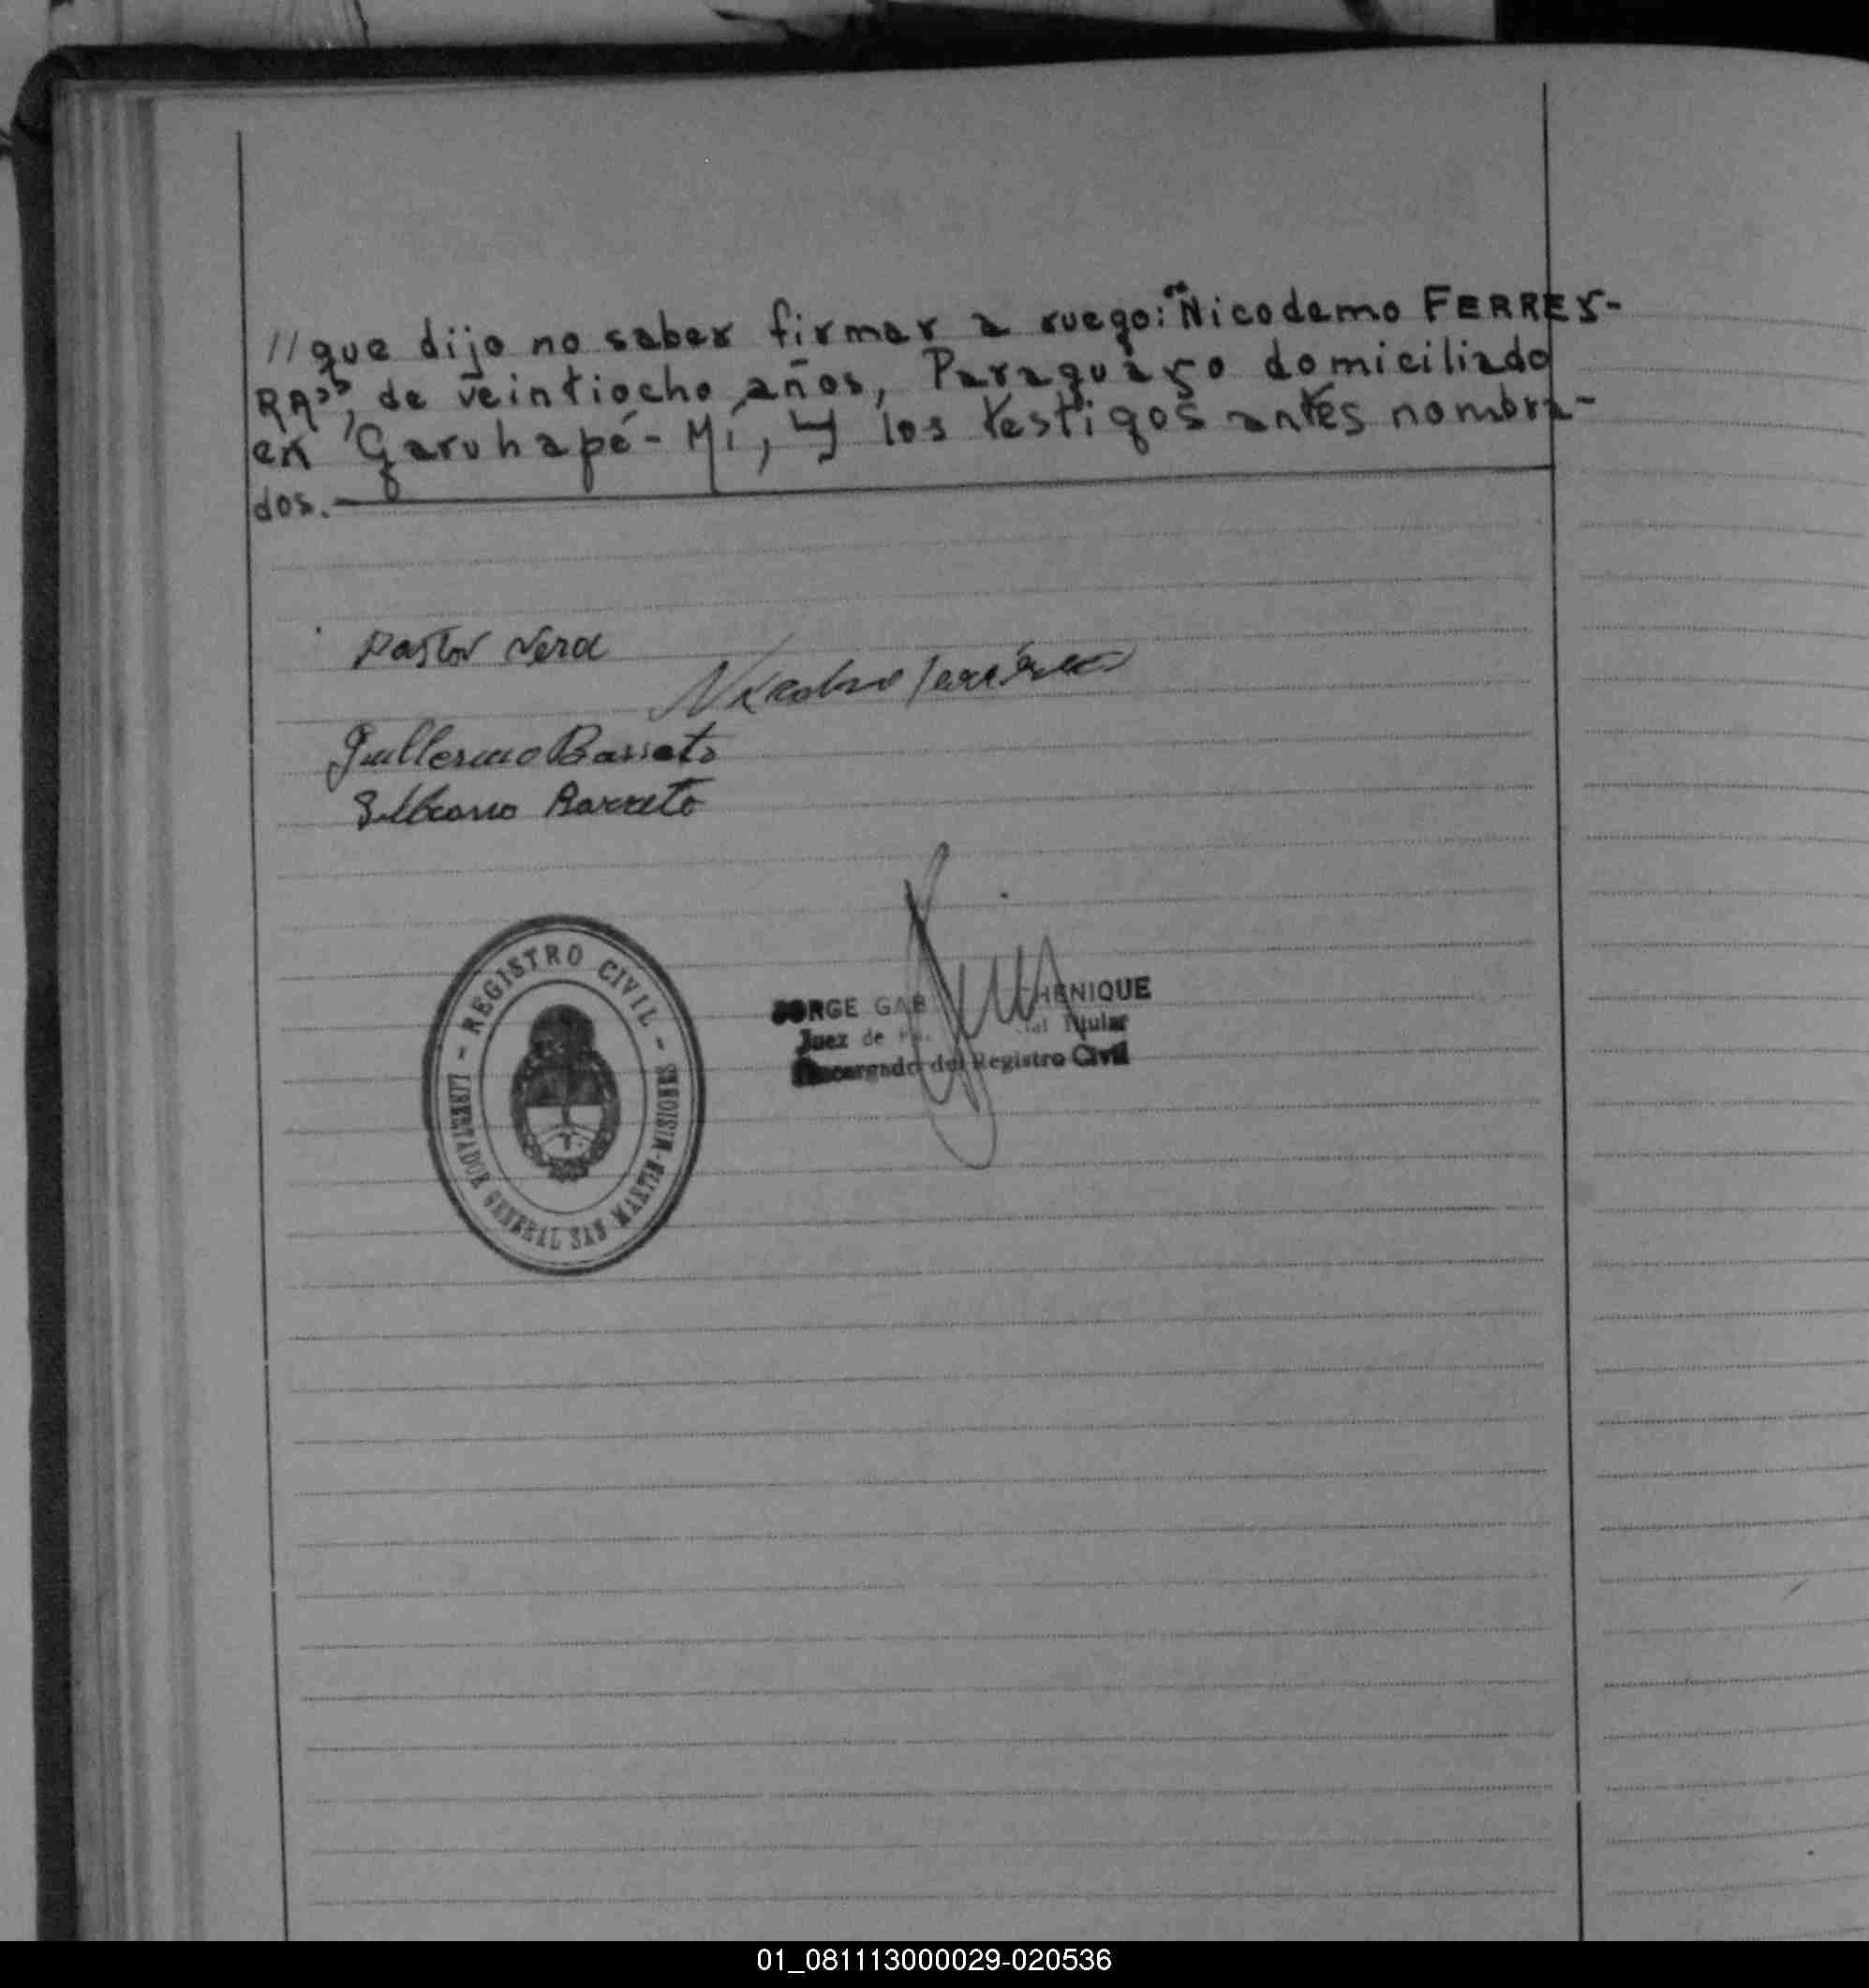 //que dijo no saber firmar a ruego: "Nicodemo FERREY-
RA", de veintiocho años, Paraguayo domiciliado
en Garuhapé-Mí, y los testigos antes nombra-
dos.
Pastor Vera
Guillermo Barreto
Barreto
REGISTRO CIVIL - LIBERTADOR GENERAL SAN MARTIN-MISIONES -
JORGE GAB HENIQUE
Juez de Titular
Encargado del Registro Civil
01_081113000029-020536